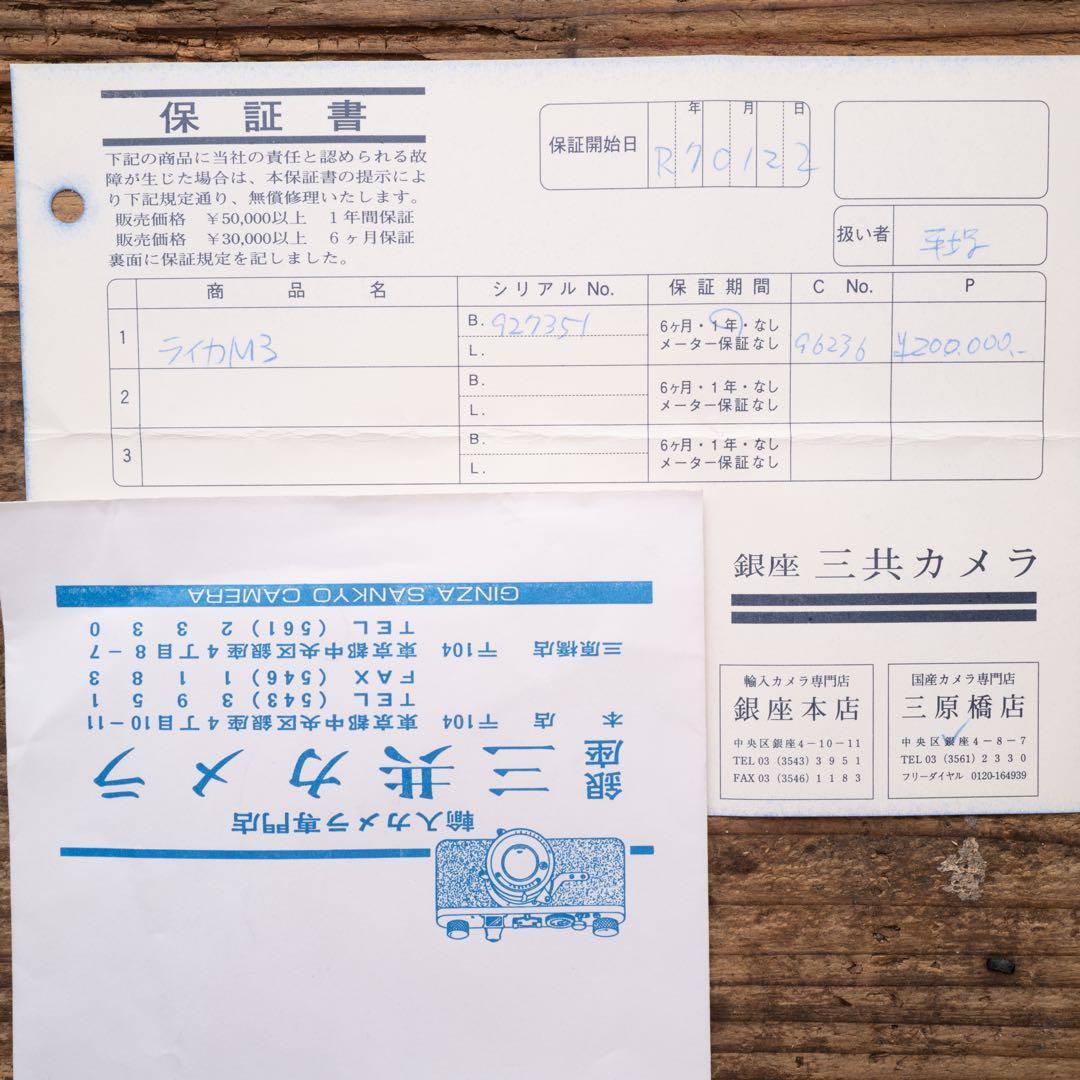 保証書
下記の商品に当社の責任と認められる故
障が生じた場合は、本保証書の提示によ
り下記規定通り、無償修理いたします。
販売価格 ￥50,000以上 1年間保証
販売価格 ￥30,000以上 6ヶ月保証
裏面に保証規定を記しました。
保証開始日 年 月 日
R70122
扱い者
商品名 シリアル No. 保証期間 C No. P
1 ライカM3 B. 927351 6ヶ月・1年・なし 96236 ¥200.000.-
L. メーター保証なし
2 B. 6ヶ月・1年・なし
L. メーター保証なし
3 B. 6ヶ月・1年・なし
L. メーター保証なし
銀座 三共カメラ
輸入カメラ専門店
銀座本店
中央区銀座4-10-11
TEL 03 (3543) 3951
FAX 03 (3546) 1183
国産カメラ専門店
三原橋店
中央区銀座4-8-7
TEL 03 (3561) 2330
フリーダイヤル 0120-164939
輸入カメラ専門店
銀座 三共カメラ
本店 〒104 東京都中央区銀座4丁目10-11
TEL (543) 3951
FAX (546) 1183
三原橋店 〒104 東京都中央区銀座4丁目8-7
TEL (561) 2330
GINZA SANKYO CAMERA